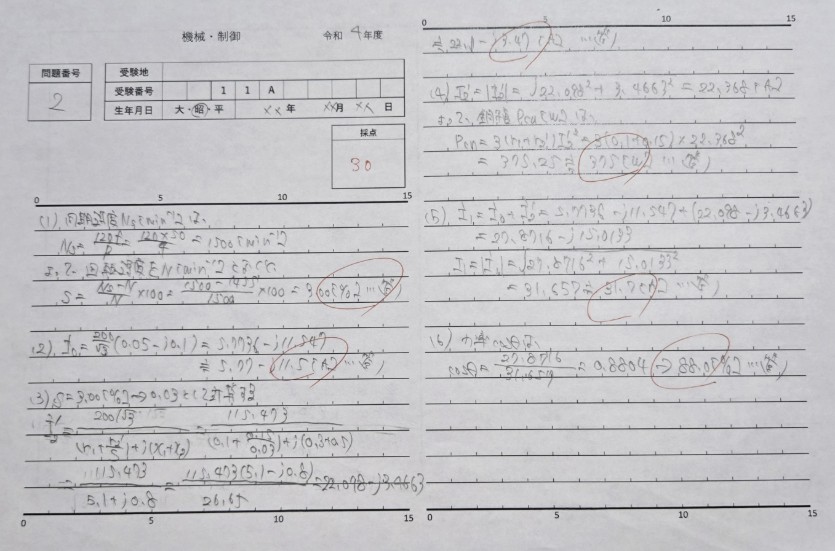 機械・制御
令和 4年度
問題番号
2
受験地
受験番号 1 1 A
生年月日 大・昭・平 ××年 ××月 ××日
採点
30
0 5 10 15
(1) 同期速度Ns[min⁻¹]は、
Ns=120f/p=120×50/4=1500[min⁻¹]
よって、回転速度をN[min⁻¹]とおくと、
×100=1500-1455/1500×100=3.00[%] …(答)
(2) İ₀=200/√3(0.05-j0.1)=5.7736-j11.547
≒5.77-j11.5[A] …(答)
(3) S=3.00[%]→0.03として計算する
200/√3 115.473
(r₁+r₂'/S)+j(x₁+x₂') (0.1+0.15/0.03)+j(0.3+0.5)
=115.473/5.1+j0.8=115.473(5.1-j0.8)/26.65=22.098-j3.4663
0 5 10 15
0 5 10 15
≒22.1-j3.47[A] …(答)
(4) I₂'=|İ₂'|=√22.098²+3.4663²=22.368[A]
よって、銅損Pcn[W]は、
Pcn=3(r₁+r₂')I₂'²=3(0.1+0.15)×22.368²
=375.25≒375[W] …(答)
(5) İ₁=İ₀+İ₂'=5.7736-j11.547+(22.098-j3.4663)
=27.8716-j15.0133
I₁=|İ₁|=√27.8716²+15.0133²
=31.657≒31.7[A] …(答)
(6) 力率cosθは、
cosθ=27.8716/31.657=0.8804→88.0[%] …(答)
0 5 10 15